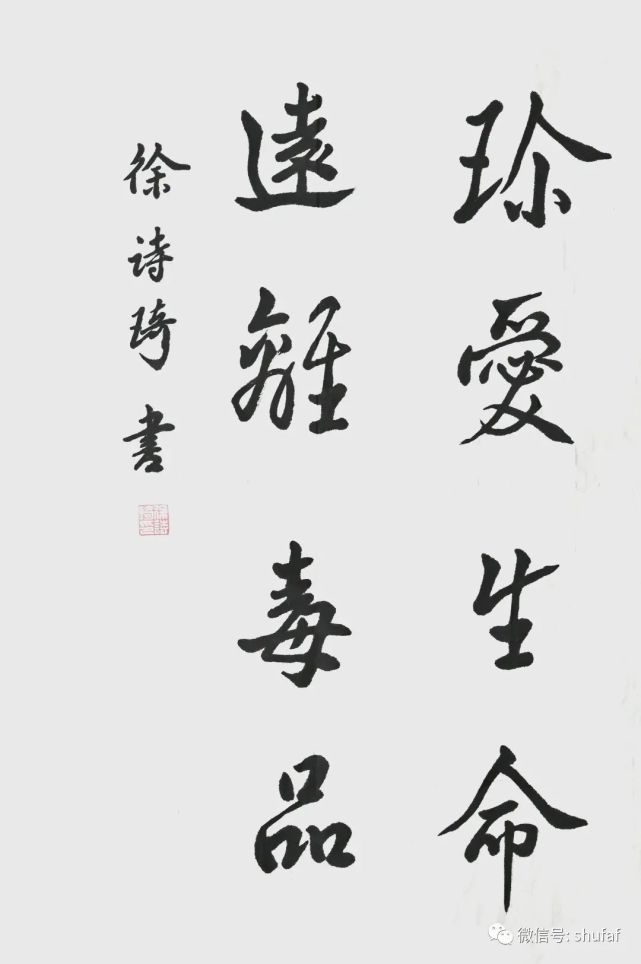 珎愛生命
遠離毒品
徐诗琦書
微信号: shufaf